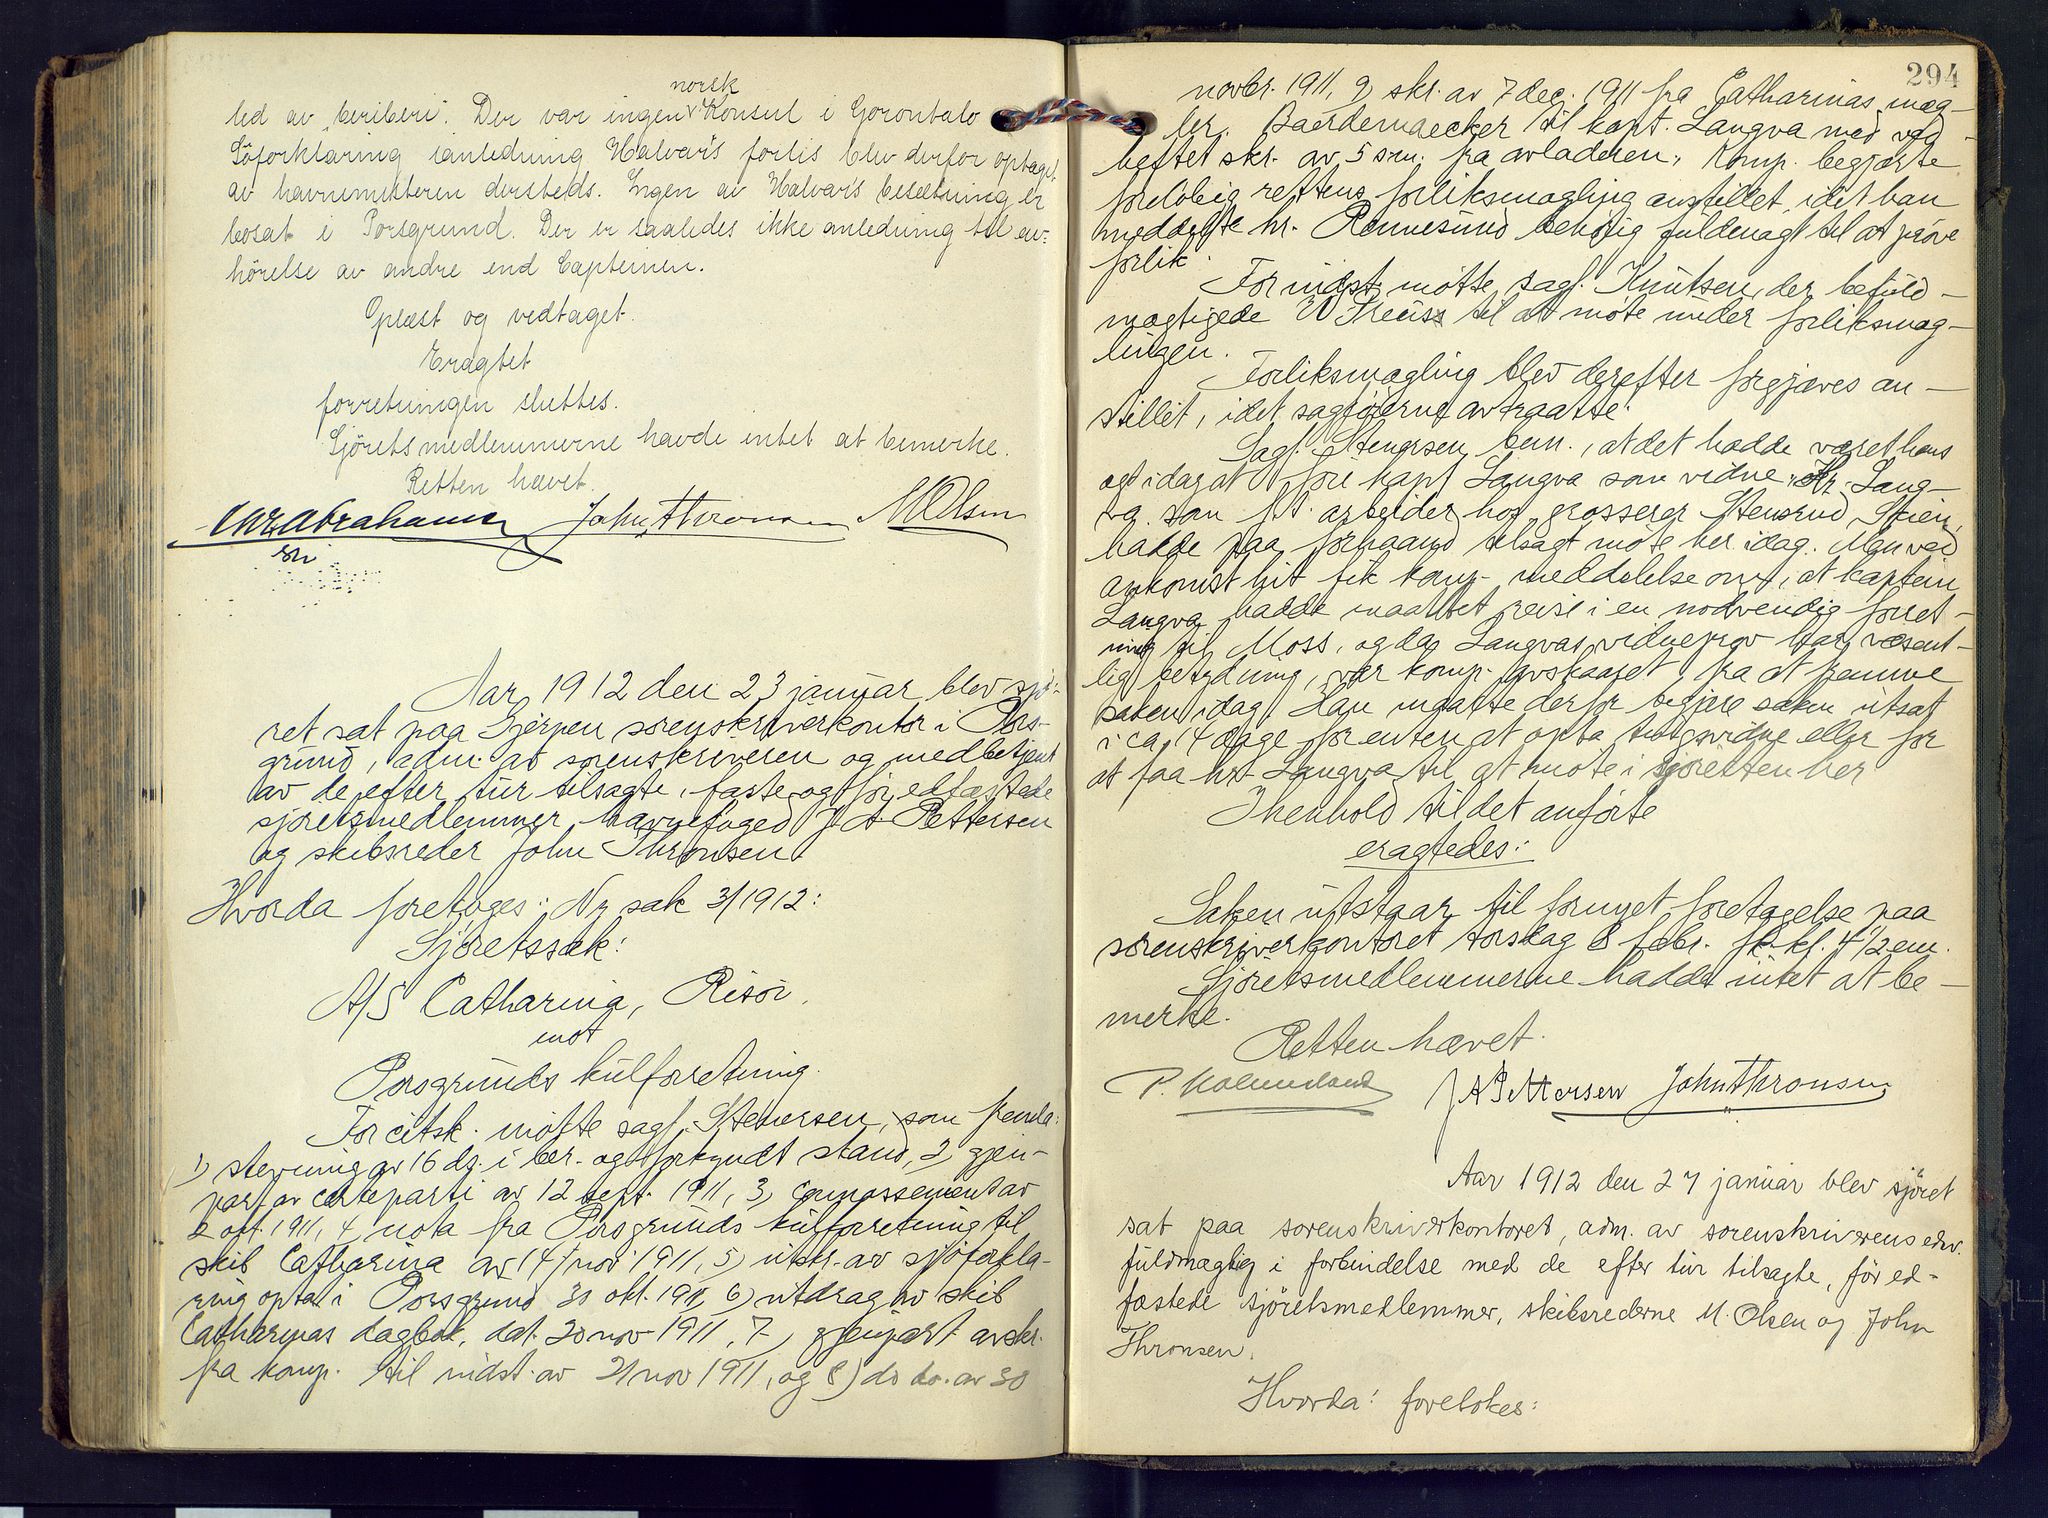 norsk
led av "beriberi". Der var ingen Konsul i Gorontalo
Söforklaring ianledning Halvar's forlis blev derfor optaget
av havnemesteren dersteds. Ingen av Halvar's besætning er
bosat i Porsgrund. Der er saaledes ikke anledning til av-
hörelse av andre end Capteinen.
Oplæst og vedtaget.
Eragtet
forretningen sluttes.
Sjöretsmedlemmerne havde intet at bemerke.
Retten hævet.
Chr Abrahamsen John Thronsen M Olsen
Aar 1912 den 23 januar blev sjö-
ret sat paa Gjerpen sorenskriverkontor i Pors-
grund, adm. av sorenskriveren og medbetjent
av de efter tur tilsagte, faste og før edfæstede
sjöretsmedlemmer, havnefoged J A Pettersen
og skibsreder John Thronsen.
Hvorda foretoges: Ny sak 3/1912:
Sjöretssak:
A/S Catharina, Risör.
mot
Porsgrunds kulforretning.
For citsk. møtte sagf. Stenersen, som fremla:
1) stevning av 16 ds. i ber. og forkyndt stand, 2) gjen-
part av certeparti av 12 sept. 1911, 3) connossement av
2 okt. 1911, 4) nota fra Porsgrunds kulforretning til
skib Catharina av 14/nov. 1911, 5) utskr. av sjöforkla-
ring optat i Porsgrund 30 okt. 1911, 6) utdrag av skib
Catharinas dagbok, dat. 20 nov 1911, 7) gjenpart av skr.
fra komp. til indst. av 21 nov 1911, og 8) do do. av 30
294
novbr. 1911, 9) skr. av 7 dec. 1911 fra Catharinas mæg-
ler. Baerdemaecker til kapt. Langva med ved-
heftet skr. av 5 s.m. fra avladeren. Komp. begjærte
foreløbig rettens forliksmægling anstillet, idet han
meddelte hr. Rønnesund behörig fuldmagt til at pröve
forlik.
For indst. møtte sagf. Knutsen, der befuld-
mægtigede til at møte under forliksmæg-
lingen.
Forliksmægling blev derefter forgjæves an-
stillet, idet sagförerne avtraatte.
Sagf. Stenersen bem., at det hadde været hans
agt idag at före kapt. Langva som vidne. Hr. Lang-
va som f.t. arbeider hos grosserer Stensrud, Skien,
hadde paa forhaand tilsagt møte her idag. Men ved
ankomst hit fik komp. meddelelse om, at kaptein
Langva hadde maattet reise i en nødvendig forret-
ning til Moss, og da Langvas vidneprov har væsent-
lig betydning, var komp. avskaaret fra at fremme
saken idag. Han maatte derfor begjære saken utsat
i ca. 14 dage forenten at opta tingsvidne eller for
at faa hr. Langva til at møte i sjøretten her
I henhold til det anførte
eragtedes:
Saken utstaar til fornyet foretagelse paa
sorenskriverkontoret torsdag 8 febr. fk. kl. 4 1/2 em.
Sjöretsmedlemmerne hadde intet at be-
merke.
Retten hævet.
J A Pettersen John Thronsen
Aar 1912 den 27 januar blev sjöret
sat paa sorenskriverkontoret, adm. av sorenskriverens edsv.
fuldmægtig i forbindelse med de efter tur tilsagte, för ed-
fæstede sjöretsmedlemmer, skibsrederne M. Olsen og John
Thronsen.
Hvorda: foretokes: